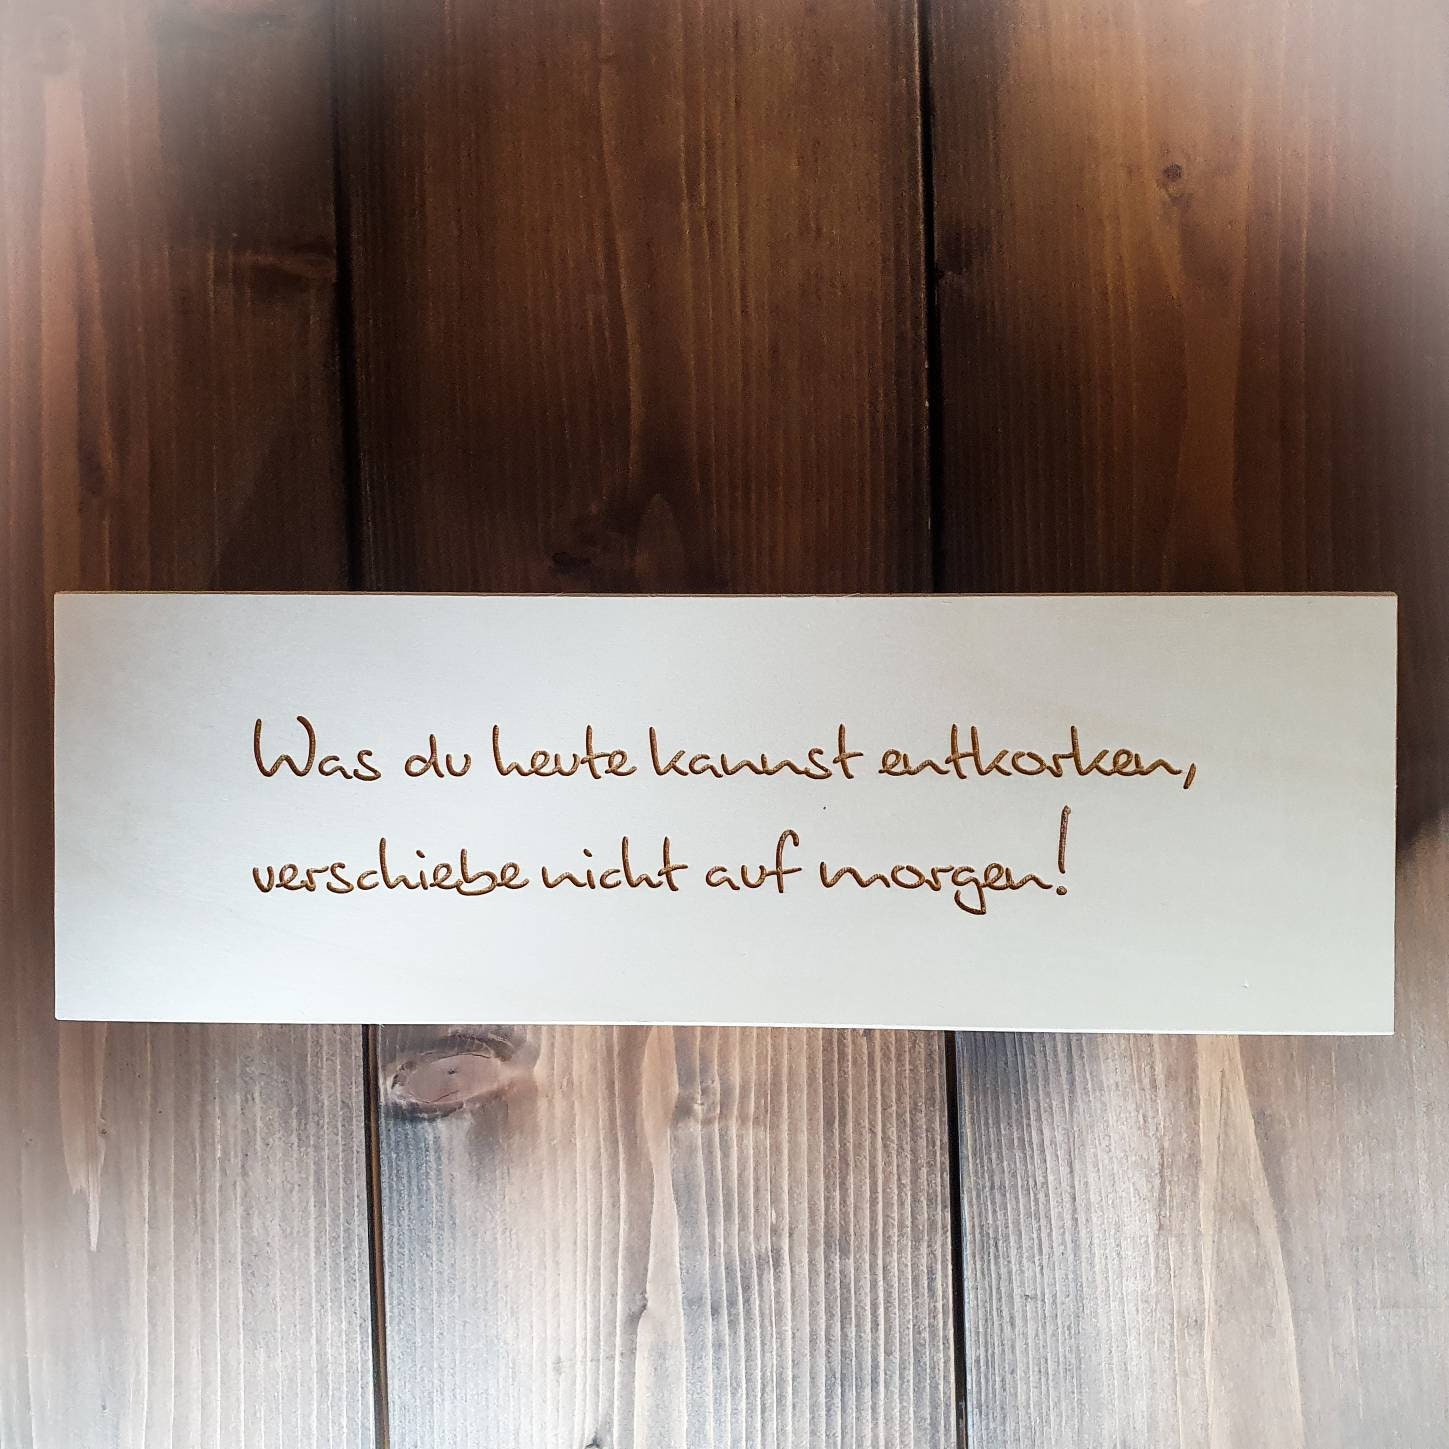 Was du heute kannst entkorken,
verschiebe nicht auf morgen!